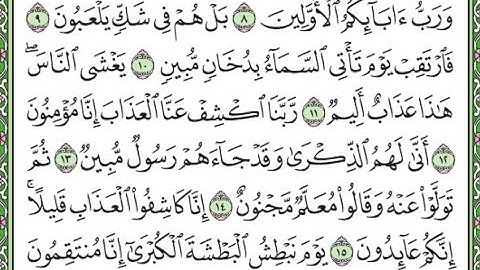 وَرَبُّ ءَابَآئِكُمُ ٱلْأَوَّلِينَ ٨ بَلْ هُمْ فِى شَكٍّ يَلْعَبُونَ ٩
فَٱرْتَقِبْ يَوْمَ تَأْتِى ٱلسَّمَآءُ بِدُخَانٍ مُّبِينٍ ١٠ يَغْشَى ٱلنَّاسَۖ
هَٰذَا عَذَابٌ أَلِيمٌ ١١ رَّبَّنَا ٱكْشِفْ عَنَّا ٱلْعَذَابَ إِنَّا مُؤْمِنُونَ
١٢ أَنَّىٰ لَهُمُ ٱلذِّكْرَىٰ وَقَدْ جَآءَهُمْ رَسُولٌ مُّبِينٌ ١٣ ثُمَّ
تَوَلَّوْا۟ عَنْهُ وَقَالُوا۟ مُعَلَّمٌ مَّجْنُونٌ ١٤ إِنَّا كَاشِفُوا۟ ٱلْعَذَابِ قَلِيلًاۚ
إِنَّكُمْ عَآئِدُونَ ١٥ يَوْمَ نَبْطِشُ ٱلْبَطْشَةَ ٱلْكُبْرَىٰٓ إِنَّا مُنتَقِمُونَ